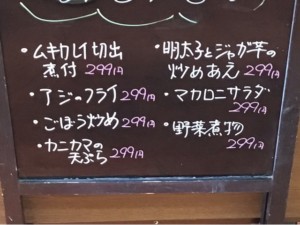 ・ムキカレイ切出
煮付 299円
・アジのフライ 299円
・ごぼう炒め 299円
・カニカマの
天ぷら 299円
・明太子とジャガ芋の
炒めあえ 299円
・マカロニサラダ
299円
・野菜煮物
299円